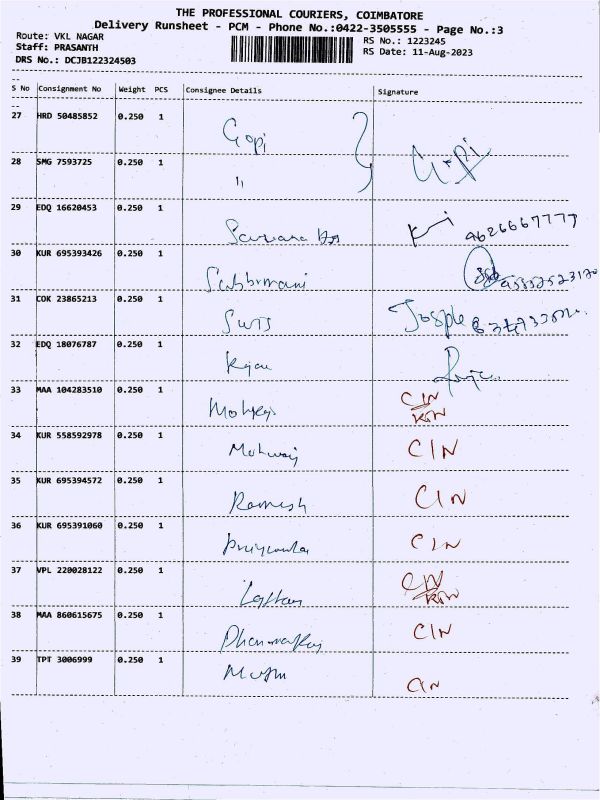 THE PROFESSIONAL COURIERS, COIMBATORE
Delivery Runsheet - PCM - Phone No.:0422-3505555 - Page No.:3
Route: VKL NAGAR
Staff: PRASANTH
DRS No.: DCJB122324503
RS No.: 1223245
RS Date: 11-Aug-2023
S No Consignment No Weight PCS Consignee Details Signature
27 HRD 50485852 0.250 1 Gopi
28 SMG 7593725 0.250 1 " Gopi
29 EDQ 16620453 0.250 1
30 KUR 695393426 0.250 1
31 COK 23865213 0.250 1
32 EDQ 18076787 0.250 1
33 MAA 104283510 0.250 1 CIN
34 KUR 558592978 0.250 1 CIN
35 KUR 695394572 0.250 1 Ramesh CIN
36 KUR 695391060 0.250 1 CIN
37 VPL 220028122 0.250 1 CIN
38 MAA 860615675 0.250 1 CIN
39 TPT 3006999 0.250 1 CIN